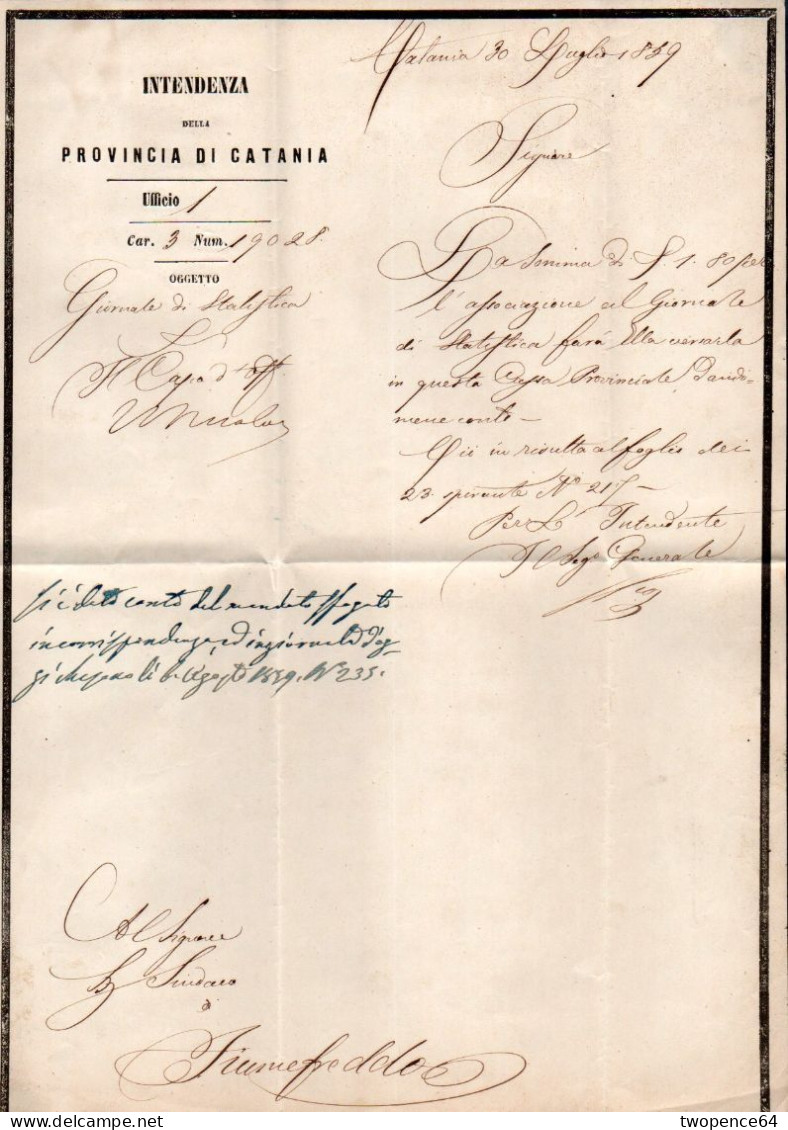 INTENDENZA
DELLA
PROVINCIA DI CATANIA
Ufficio 1
Car. 3 Num. 19028.
OGGETTO
Giornale di Statistica
Il Capo d'Uff.
Catania 30 Luglio 1859
Signore
La Somma di 1. 80 per
l'associazione al Giornale
di Statistica farà Ella versarla
in questa Cassa Provinciale dando-
mene conto —
Ciò in risulta al foglio dei
23. spirante N.º 217 —
Per L'Intendente
Il Seg.º Generale
Si è dato conto del mandato
in corrispondenza, ed in giornale d'og-
gi li 6 Agosto 1859. N.º 235.
Al Signore
Sindaco
di
Fiumefreddo
twopence64